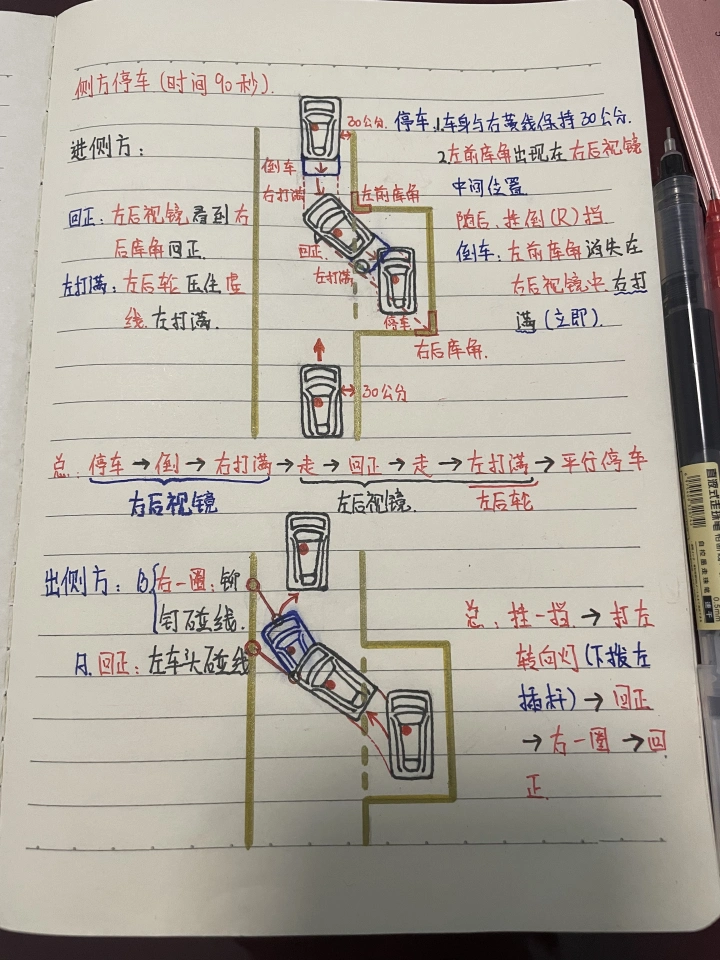 侧方停车(时间90秒).
30公分.
停车.1.车身与右黄线保持30公分.
进侧方:
倒车
2左前库角出现在右后视镜
右打满
左前库角
中间位置
回正:左后视镜看到右
随后.挂倒(R)挡
后库角回正.
回正
倒车:左前库角消失在
左打满:左后轮压住虚
左打满
右后视镜中右打
线.左打满.
停车
满(立即).
右后库角.
30公分
总:停车→倒→右打满→走→回正→走→左打满→平行停车
右后视镜
左后视镜
左后轮
出侧方:B右一圈:铆
钉碰线.
总:挂一挡→打左
A.回正:左车头碰线
转向灯(下拨左
插杆)→回正
→右一圈→回
正
0.5mm
速干